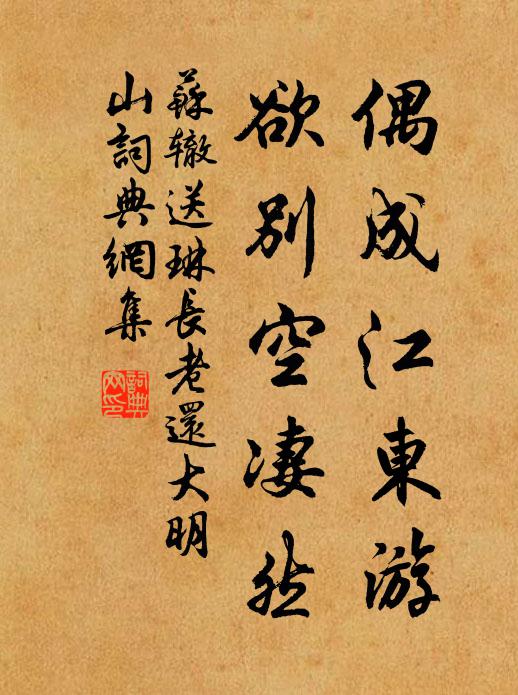 偶成江東游
欲别空凄然
蘇辙送琳長老還大明
山詞典網集
詞典
网印